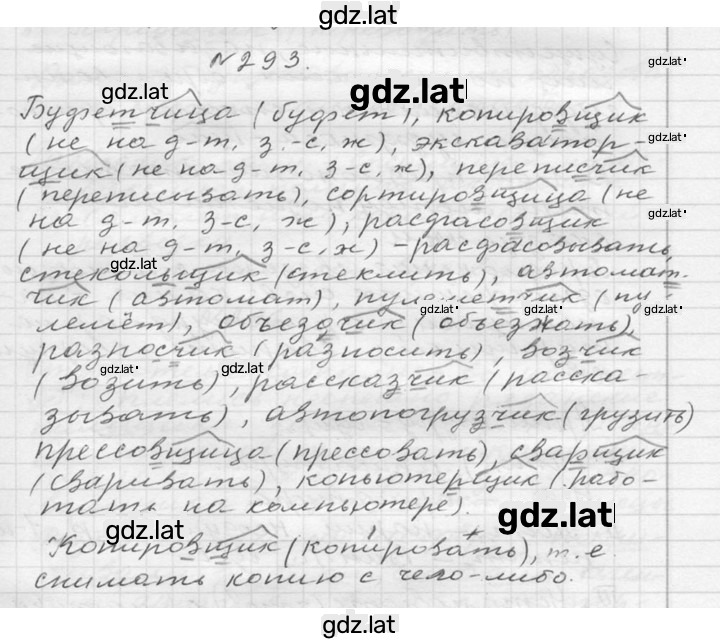 gdz.lat
№293.
gdz.lat
gdz.lat
gdz.lat
Буфетчица (буфет), копировщик
(не на д-т, з-с, ж), экскаватор-
gdz.lat
щик (не на д-т, з-с, ж), переписчик
(переписывать), сортировщица (не
на д-т, з-с, ж), расфасовщик
gdz.lat
(не на д-т, з-с, ж) - расфасовывать,
gdz.lat
стекольщик (стеклить), автомат-
чик (автомат), пулеметчик (пу-
gdz.lat
gdz.lat
gdz.lat
лемёт), объездчик (объезжать),
разносчик (разносить), возчик
gdz.lat
gdz.lat
(возить), рассказчик (расска-
зывать), автопогрузчик (грузить)
прессовщица (прессовать), сварщик
(сваривать), копьютерщик (рабо-
тать на компьютере).
gdz.lat
gdz.lat
Копировщик (копировать), т. е.
снимать копию с чего-либо.
gdz.lat